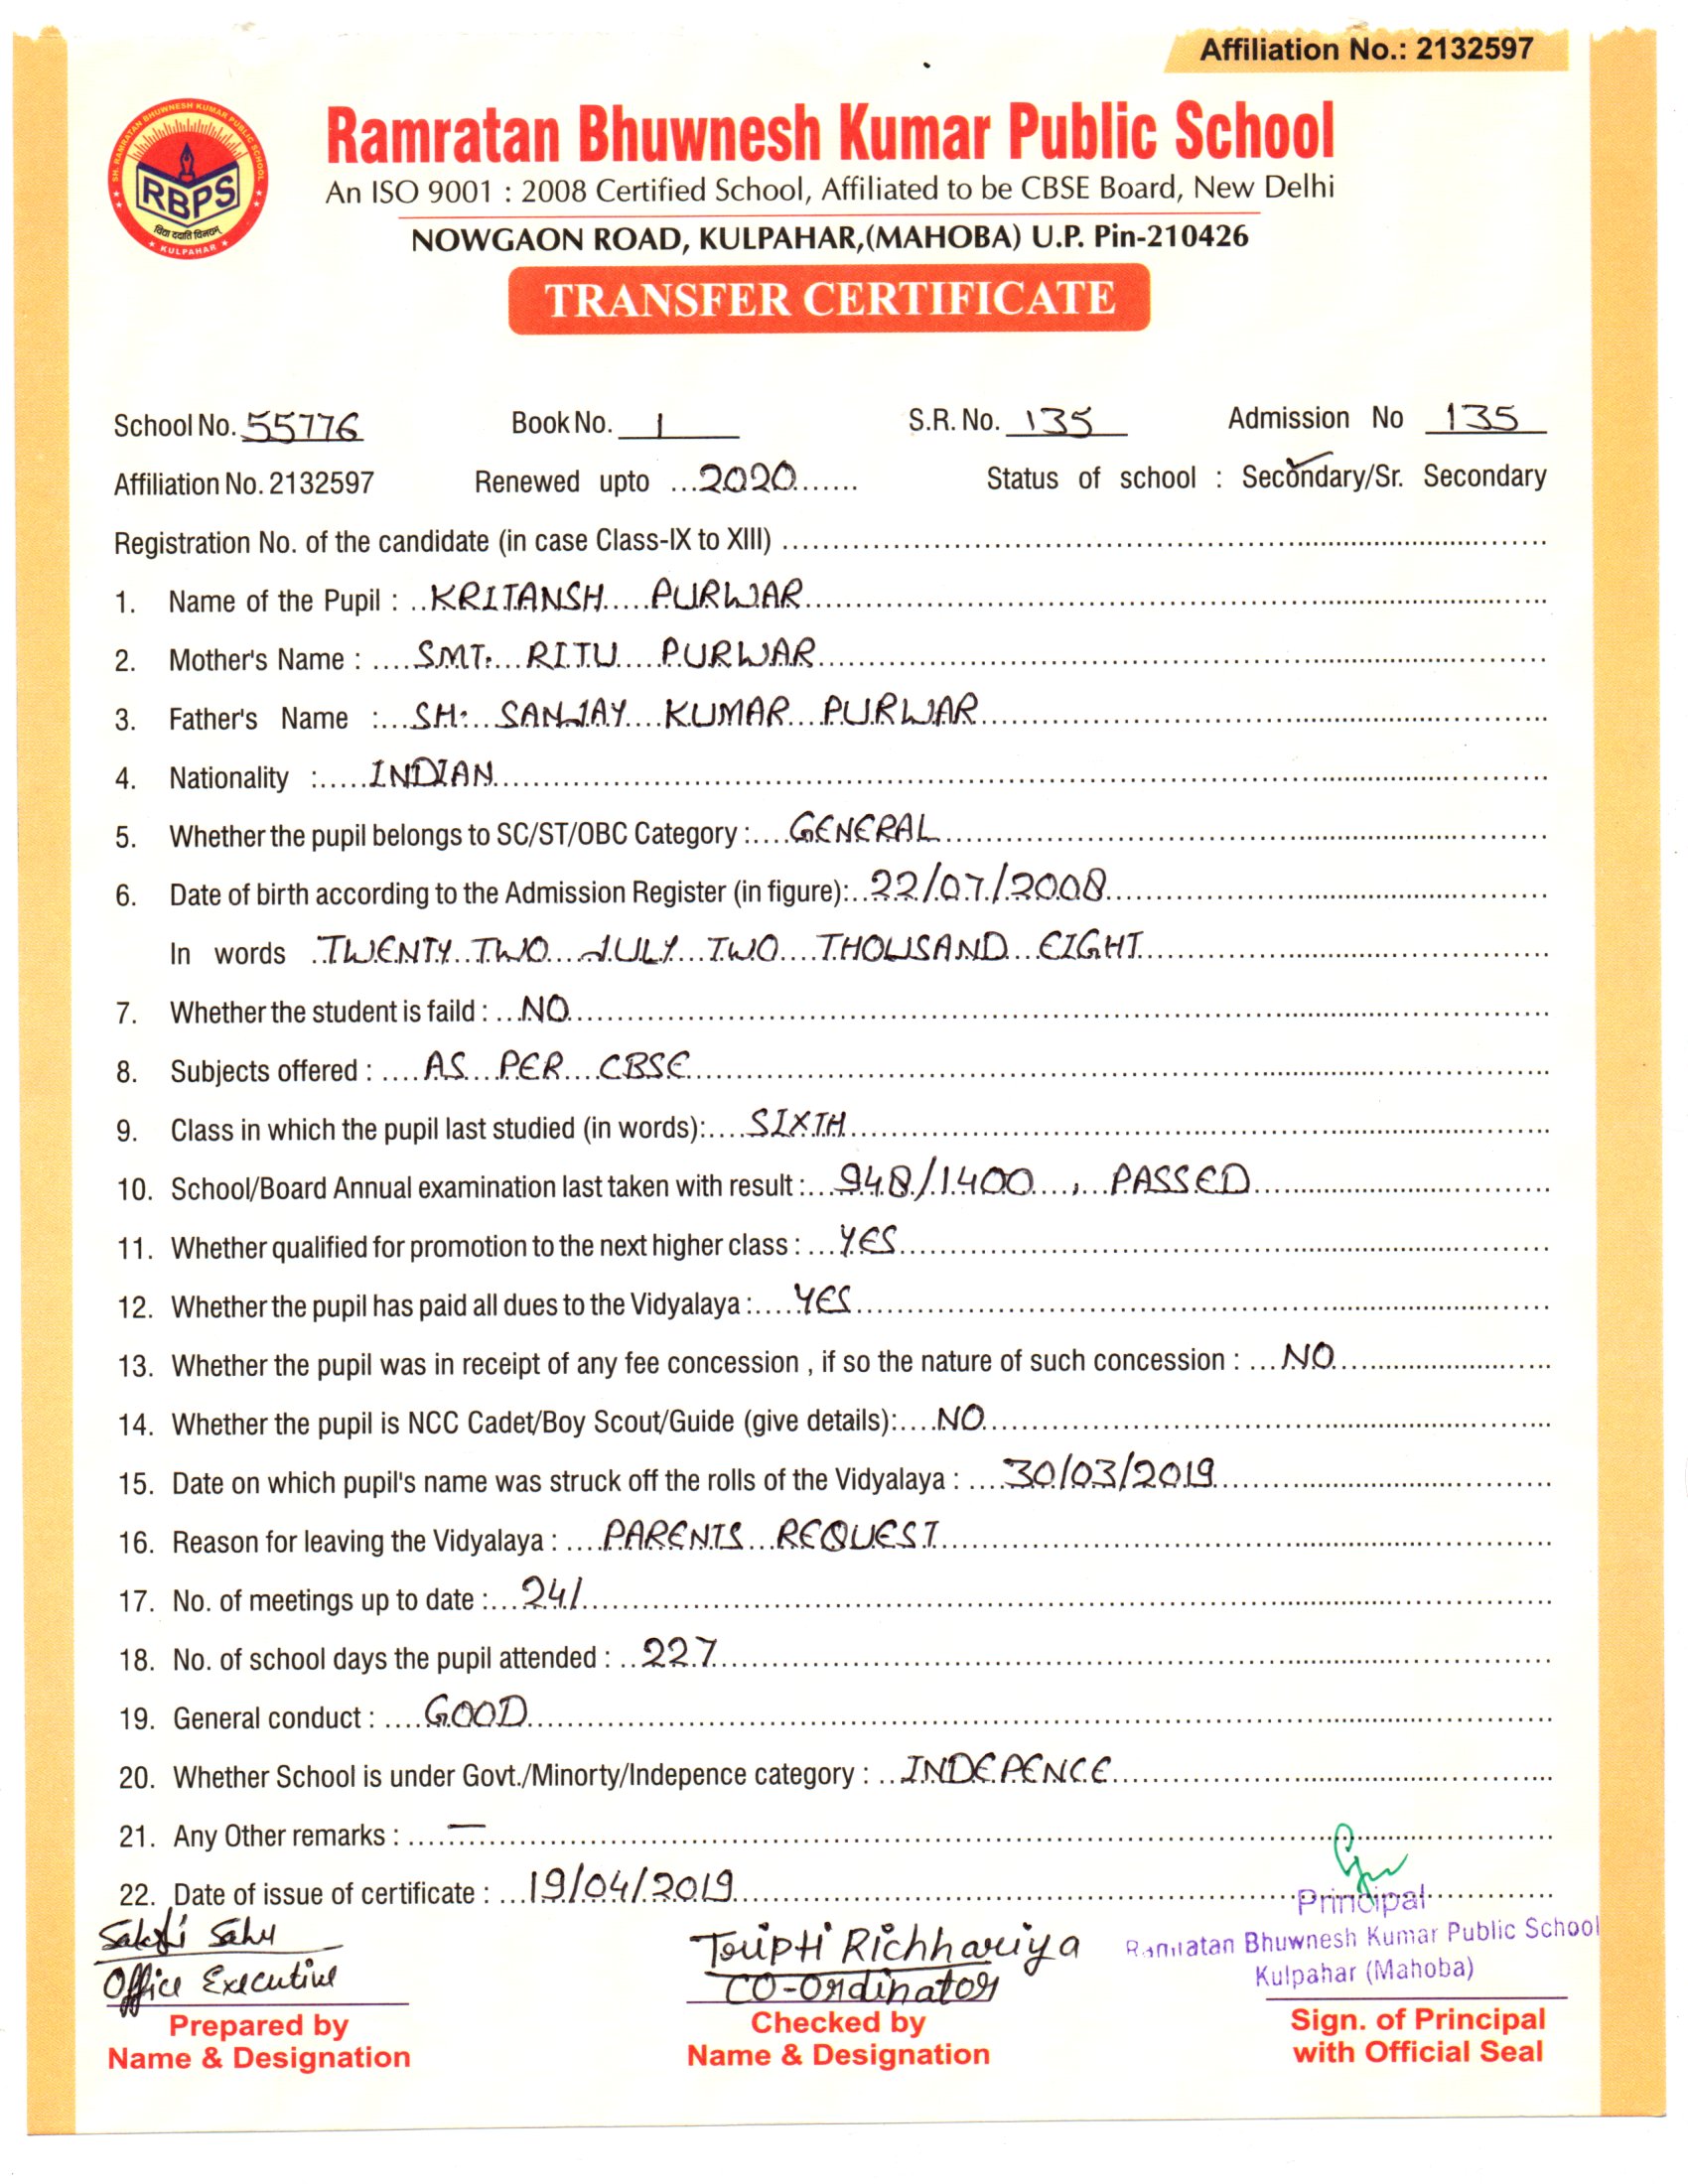 Affiliation No.: 2132597
SH. RAMRATAN BHUWNESH KUMAR PUBLIC SCHOOL
RBPS
विद्या ददाति विनयम्
★ KULPAHAR ★
Ramratan Bhuwnesh Kumar Public School
An ISO 9001 : 2008 Certified School, Affiliated to be CBSE Board, New Delhi
NOWGAON ROAD, KULPAHAR,(MAHOBA) U.P. Pin-210426
TRANSFER CERTIFICATE
School No. 55776 Book No. 1 S.R. No. 135 Admission No 135
Affiliation No. 2132597 Renewed upto ...2020....... Status of school : Secondary/Sr. Secondary
Registration No. of the candidate (in case Class-IX to XIII) ..........
1. Name of the Pupil : KRITANSH PURWAR
2. Mother's Name : SMT. RITU PURWAR
3. Father's Name : SH. SANJAY KUMAR PURWAR
4. Nationality : INDIAN
5. Whether the pupil belongs to SC/ST/OBC Category : GENERAL
6. Date of birth according to the Admission Register (in figure): 22/07/2008
In words TWENTY TWO JULY TWO THOUSAND EIGHT
7. Whether the student is faild : NO
8. Subjects offered : AS PER CBSE
9. Class in which the pupil last studied (in words): SIXTH
10. School/Board Annual examination last taken with result : 948/1400 , PASSED
11. Whether qualified for promotion to the next higher class : YES
12. Whether the pupil has paid all dues to the Vidyalaya : YES
13. Whether the pupil was in receipt of any fee concession , if so the nature of such concession : NO
14. Whether the pupil is NCC Cadet/Boy Scout/Guide (give details): NO
15. Date on which pupil's name was struck off the rolls of the Vidyalaya : 30/03/2019
16. Reason for leaving the Vidyalaya : PARENTS REQUEST
17. No. of meetings up to date : 241
18. No. of school days the pupil attended : 227
19. General conduct : GOOD
20. Whether School is under Govt./Minorty/Indepence category : INDEPENCE
21. Any Other remarks : —
22. Date of issue of certificate : 19/04/2019
Sakshi Sahu
Office Executive
Prepared by
Name & Designation
Tripti Richhariya
CO-Ordinator
Checked by
Name & Designation
Principal
Ramratan Bhuwnesh Kumar Public School
Kulpahar (Mahoba)
Sign. of Principal
with Official Seal